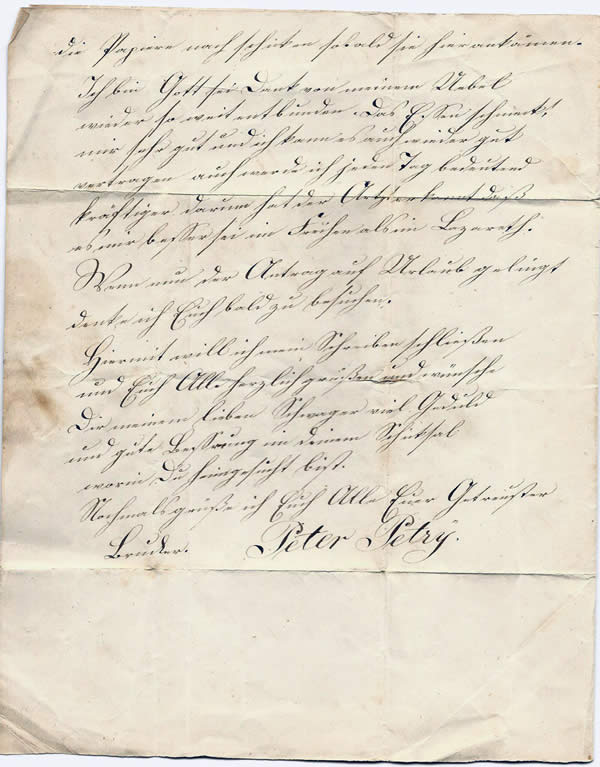 die Papiere nachschicken sobald sie hier ankämen.
Ich bin Gott sei Dank von meinem Uebel
wieder so weit entbunden. Das Essen schmeckt
mir sehr gut und ich kann es auch wieder gut
vertragen auch werde ich jeden Tag bedeutend
kräftiger darum hat der Arzt erkannt daß
es mir besser sei im Freien als im Lazareth.
Wenn nun der Antrag auf Urlaub gelingt
denke ich Euch bald zu besuchen.
Hiermit will ich mein Schreiben schließen
und Euch Alle herzlich grüßen und wünsche
Dir meinem lieben Schwager viel Geduld
und gute Bessrung in deinem Schiksal
worin Du heimgesucht bist.
Nochmals grüße ich Euch Alle Euer Getreuster
Bruder. Peter Petrÿ.